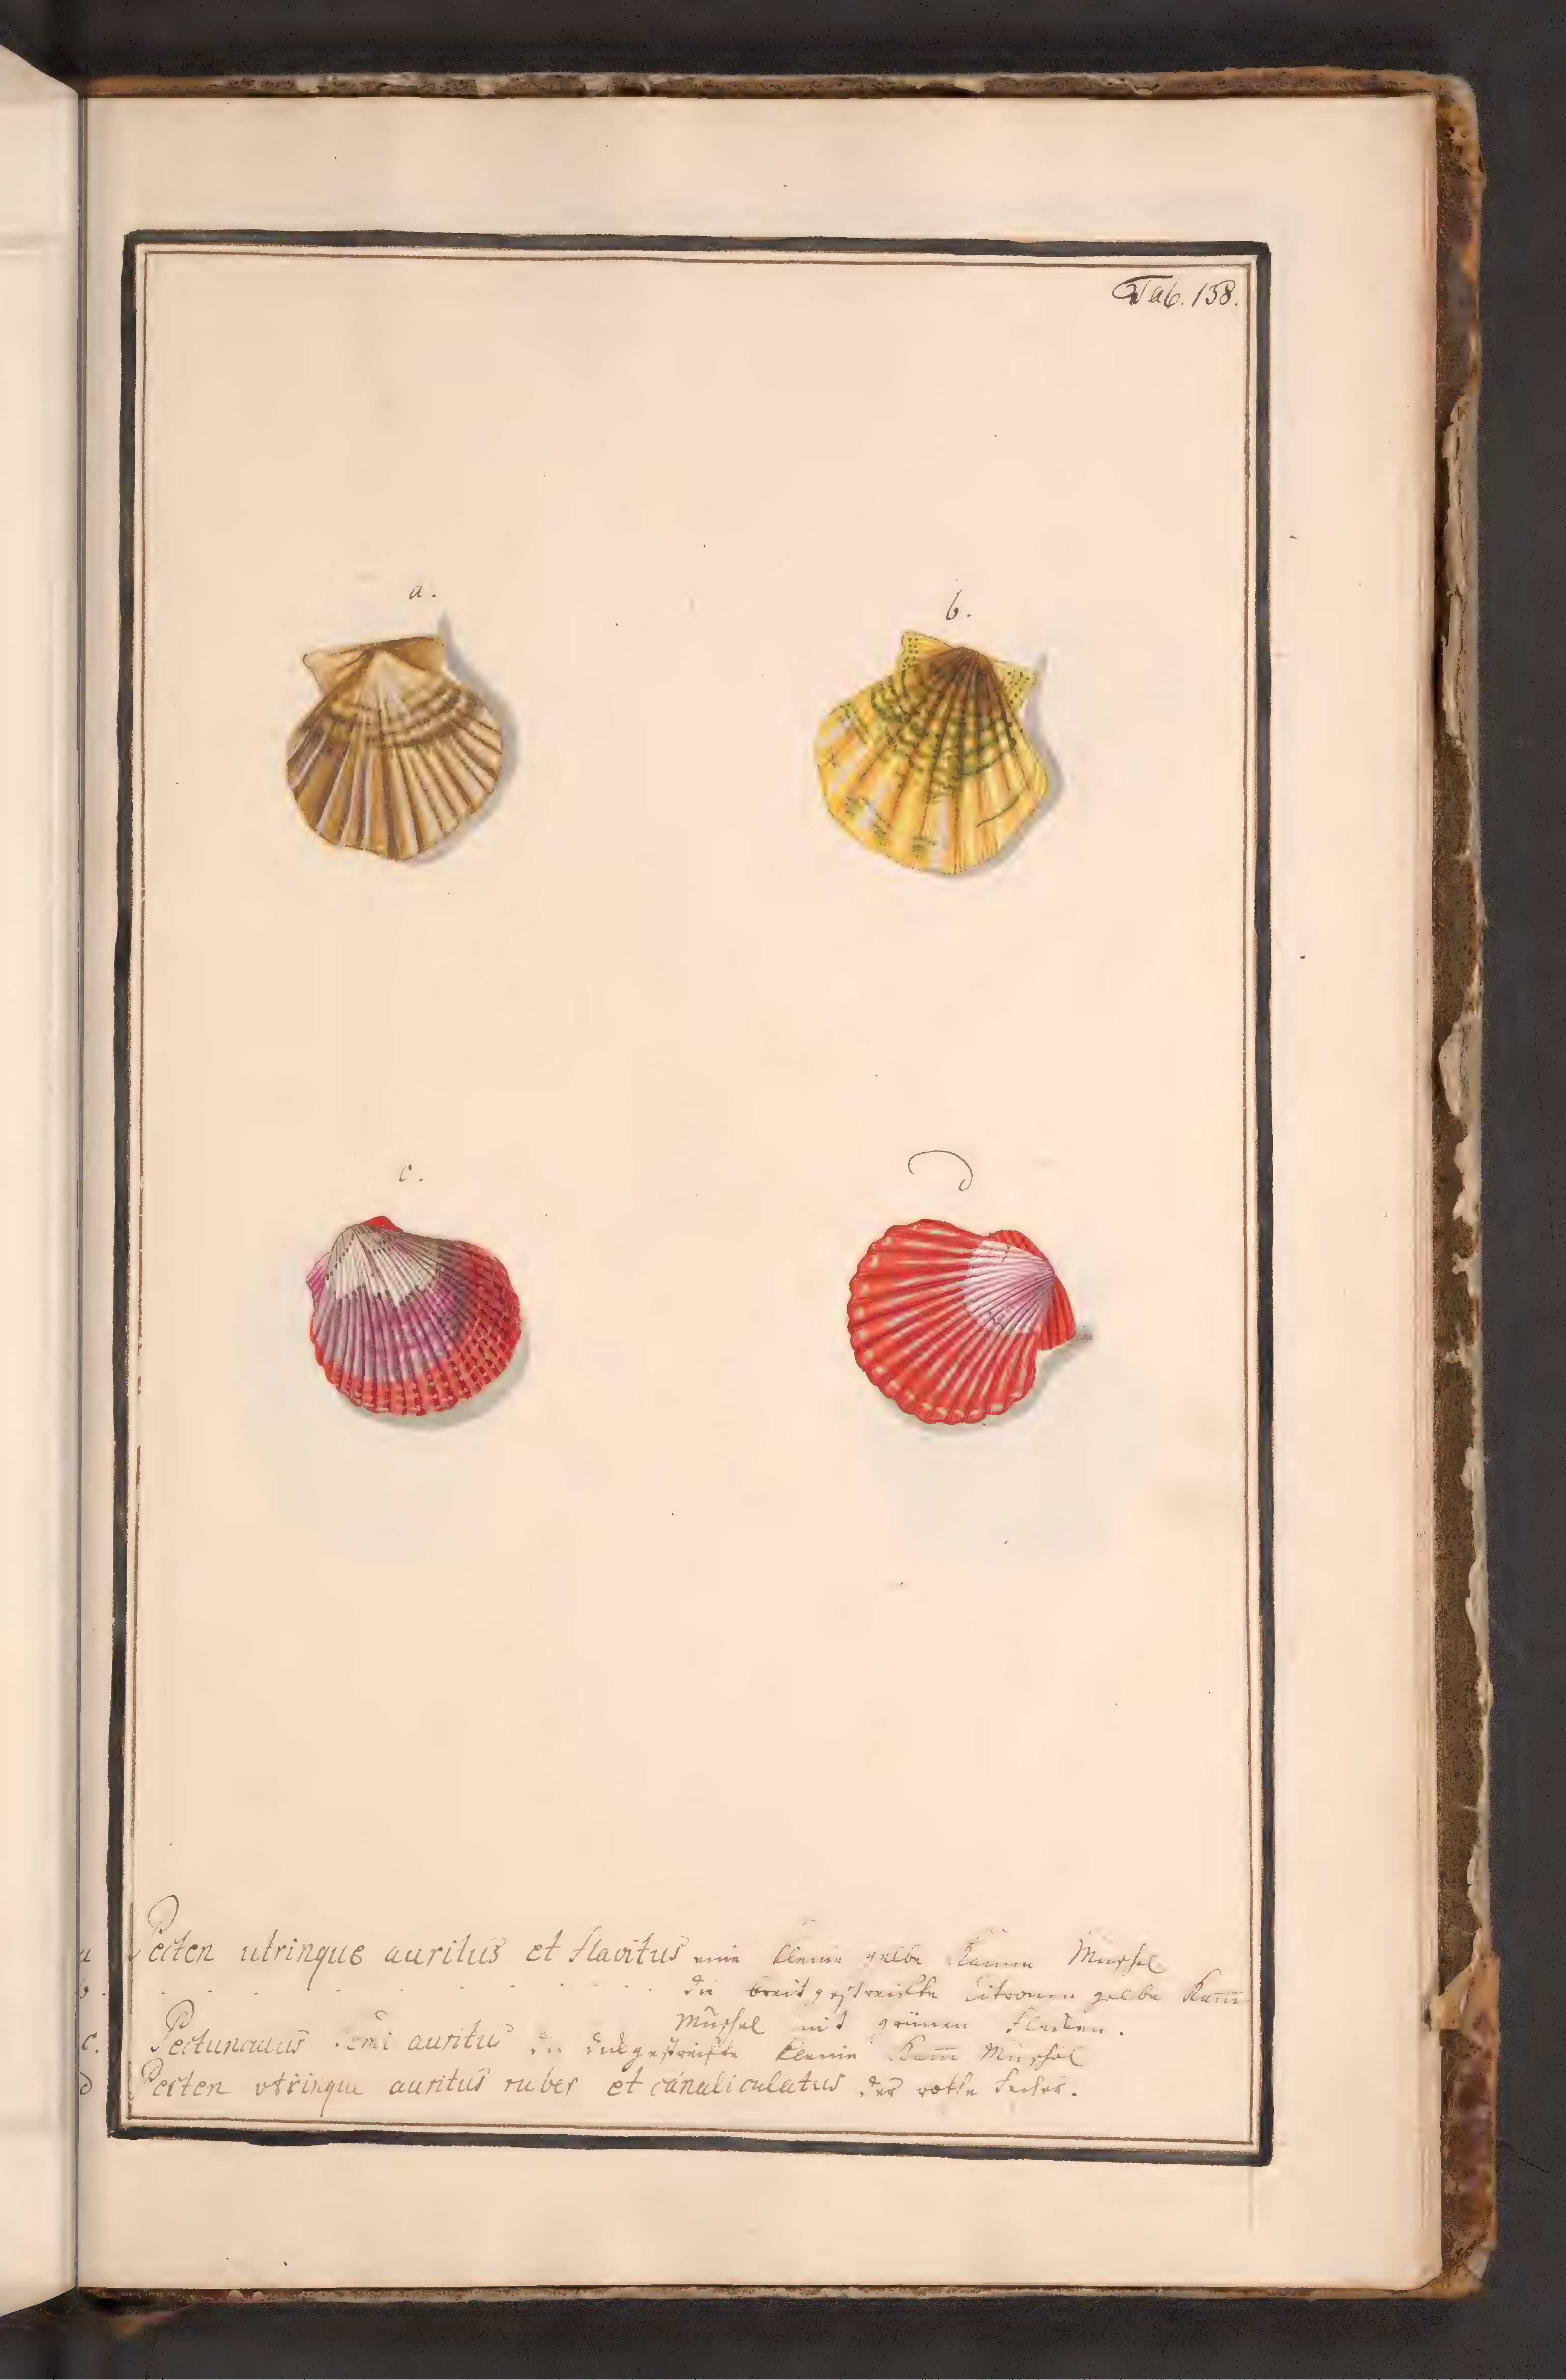 Tab. 158.
a.
b.
c.
d
a Pecten utrinque auritus et flavitus eine kleine gelbe Kamm Muschel
b. . . . . . . die breit gestreiffte Citronen gelbe Kam̅
Muschel mit grünen Flecken.
c. Pectunculus Semi auritus die gestreifte kleine Kam̅ Muschel
d Pecten vtrinque auritus ruber et canaliculatus der rothe